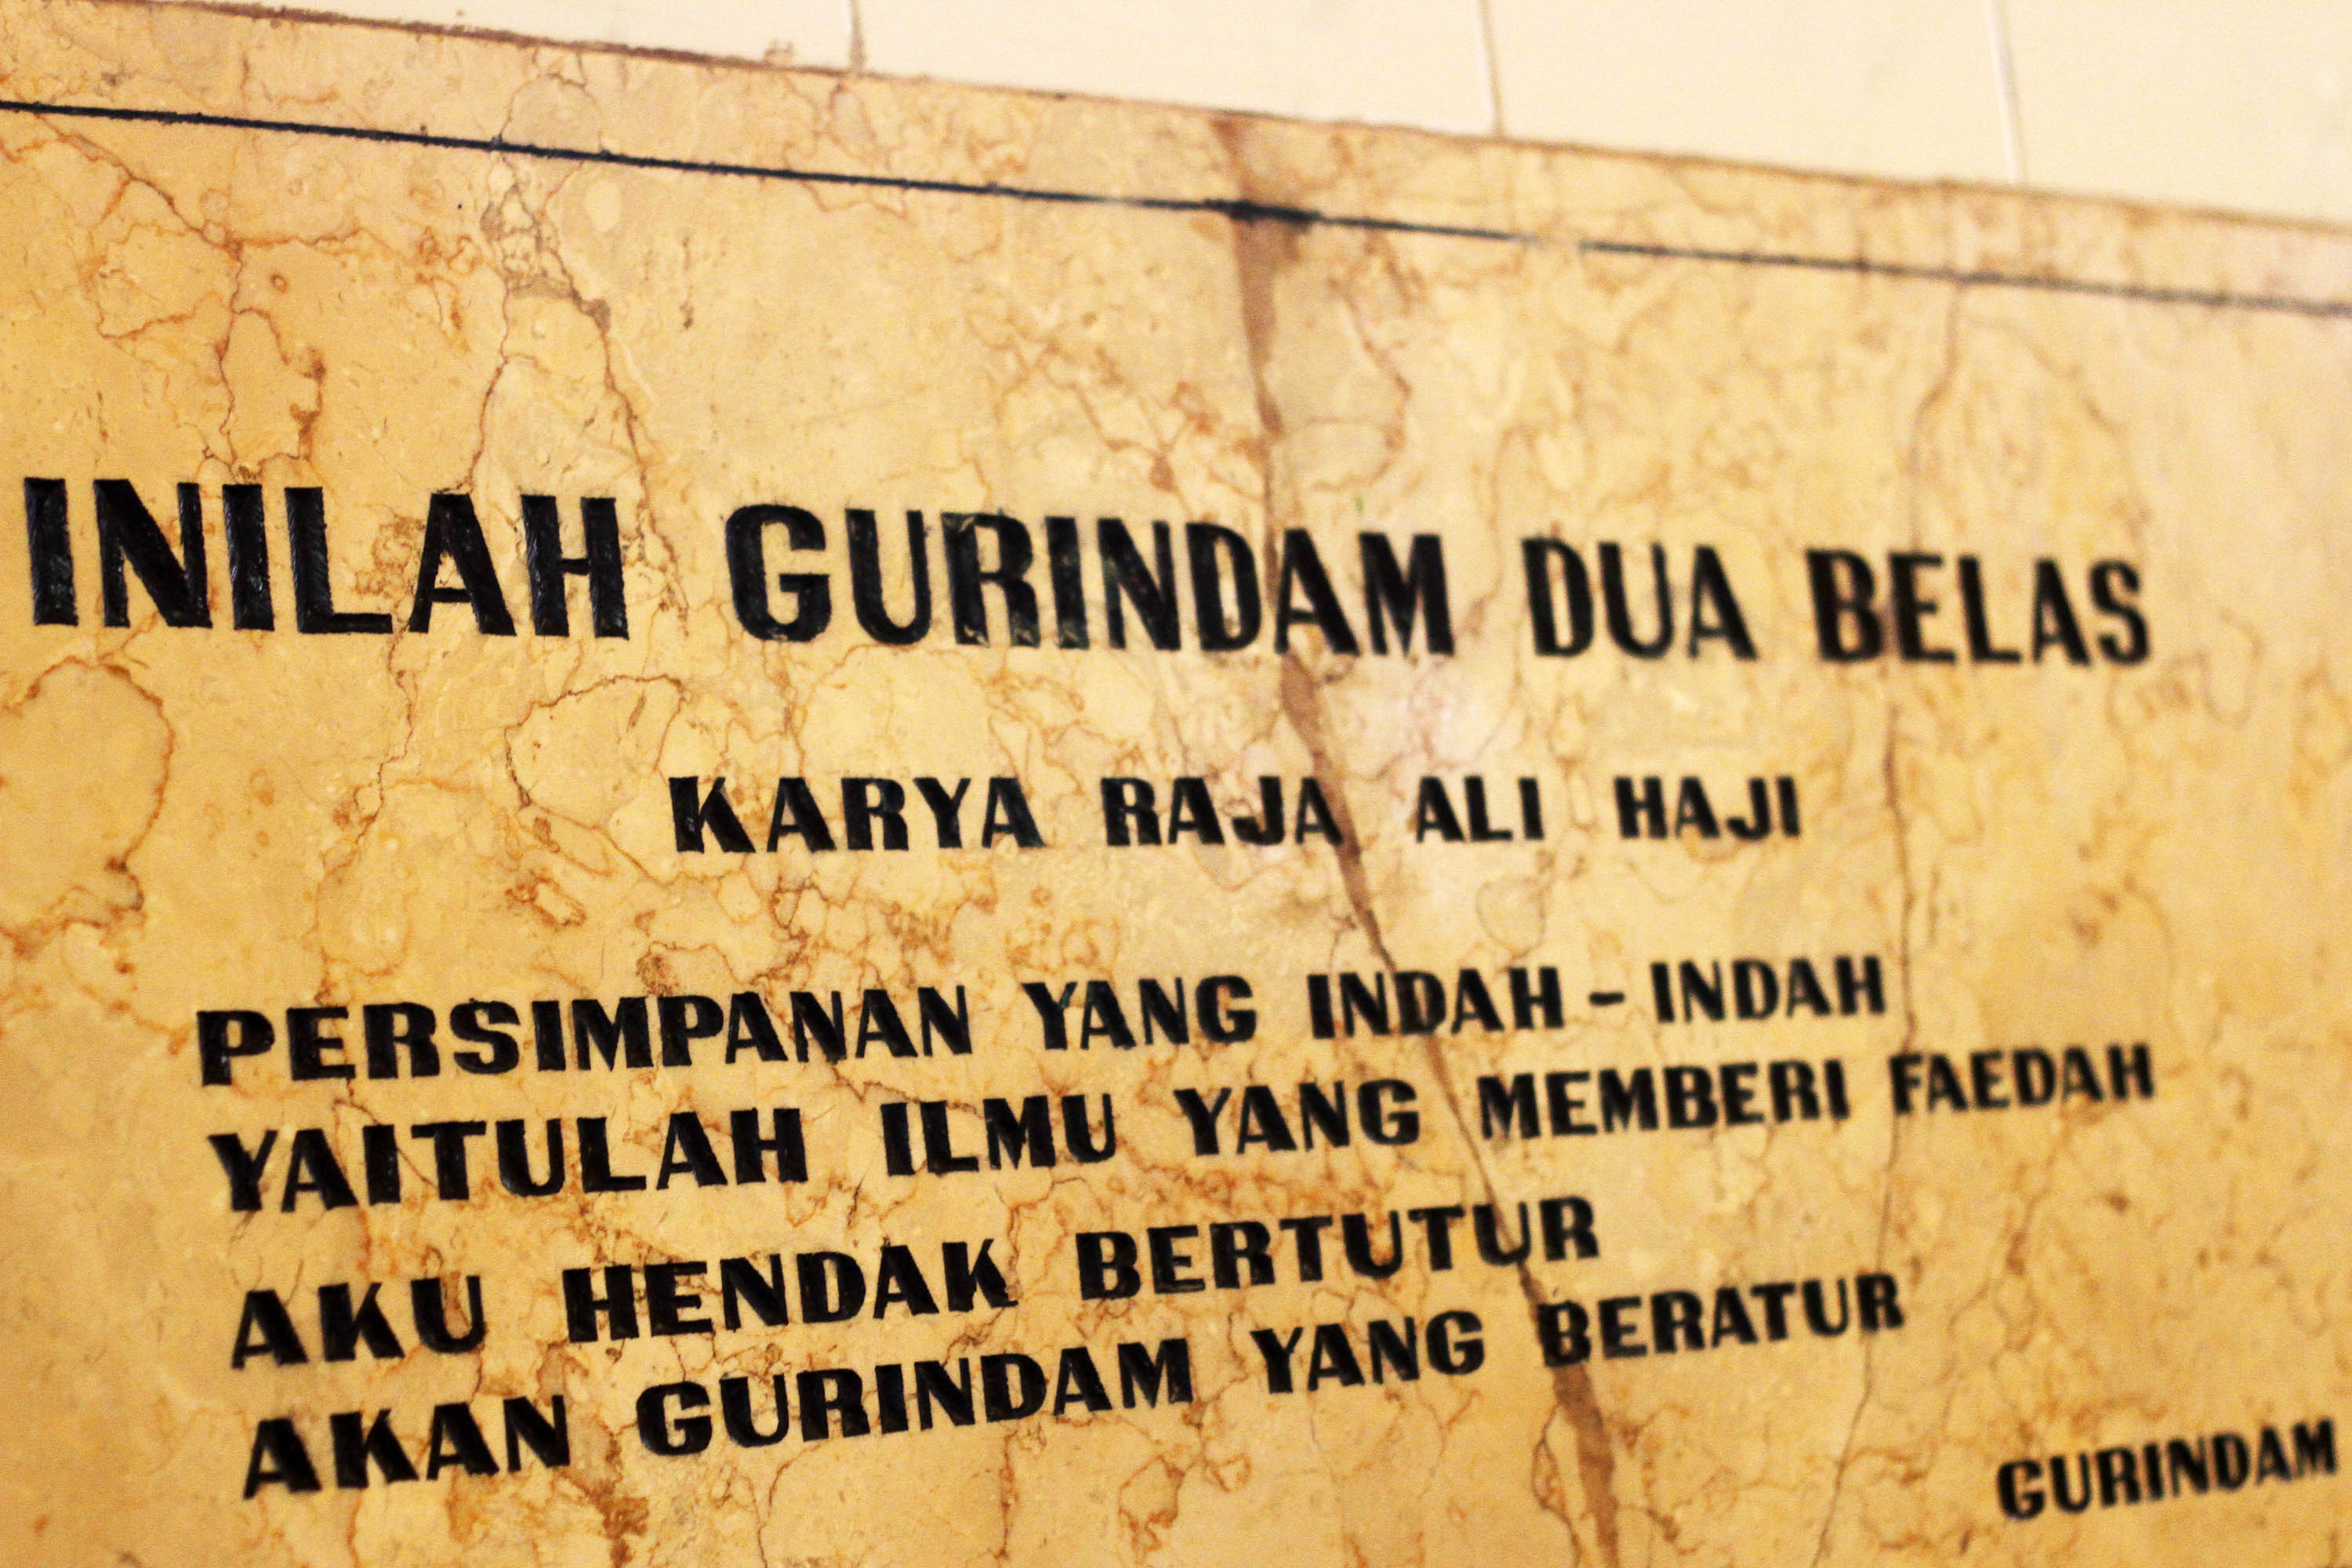 INILAH GURINDAM DUA BELAS
KARYA RAJA ALI HAJI
PERSIMPANAN YANG INDAH-INDAH
YAITULAH ILMU YANG MEMBERI FAEDAH
AKU HENDAK BERTUTUR
AKAN GURINDAM YANG BERATUR
GURINDAM